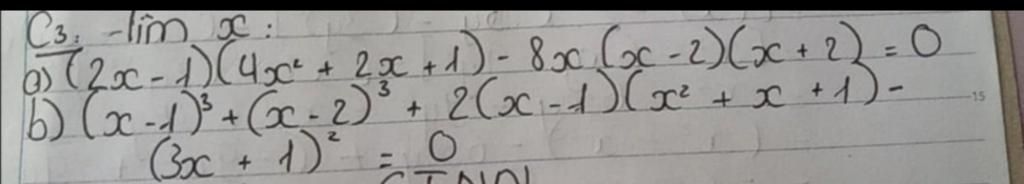 C3: - tìm x:
a) (2x - 1)(4x² + 2x + 1) - 8x (x - 2)(x + 2) = 0
b) (x - 1)³ + (x - 2)³ + 2(x - 1)(x² + x + 1) -
(3x + 1)² = 0
15